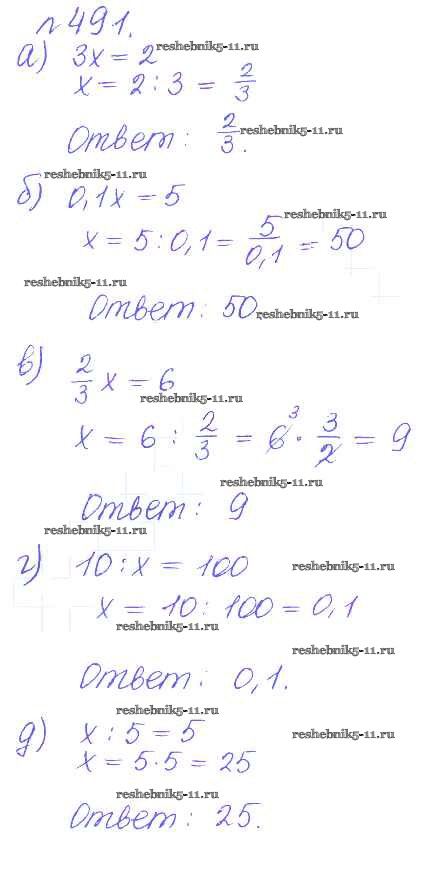 № 491.
а) 3x = 2 reshebnik5-11.ru
x = 2 : 3 = 2/3
Ответ: 2/3. reshebnik5-11.ru
reshebnik5-11.ru
б) 0,1x = 5
reshebnik5-11.ru
x = 5 : 0,1 = 5/0,1 = 50
reshebnik5-11.ru
Ответ: 50. reshebnik5-11.ru
в) 2/3 x = 6
reshebnik5-11.ru
x = 6 : 2/3 = 6 3 · 3/2 = 9
reshebnik5-11.ru
Ответ: 9
reshebnik5-11.ru
г) 10 : x = 100 reshebnik5-11.ru
x = 10 : 100 = 0,1
reshebnik5-11.ru
reshebnik5-11.ru
Ответ: 0,1.
reshebnik5-11.ru
д) x : 5 = 5 reshebnik5-11.ru
x = 5·5 = 25
reshebnik5-11.ru
Ответ: 25.